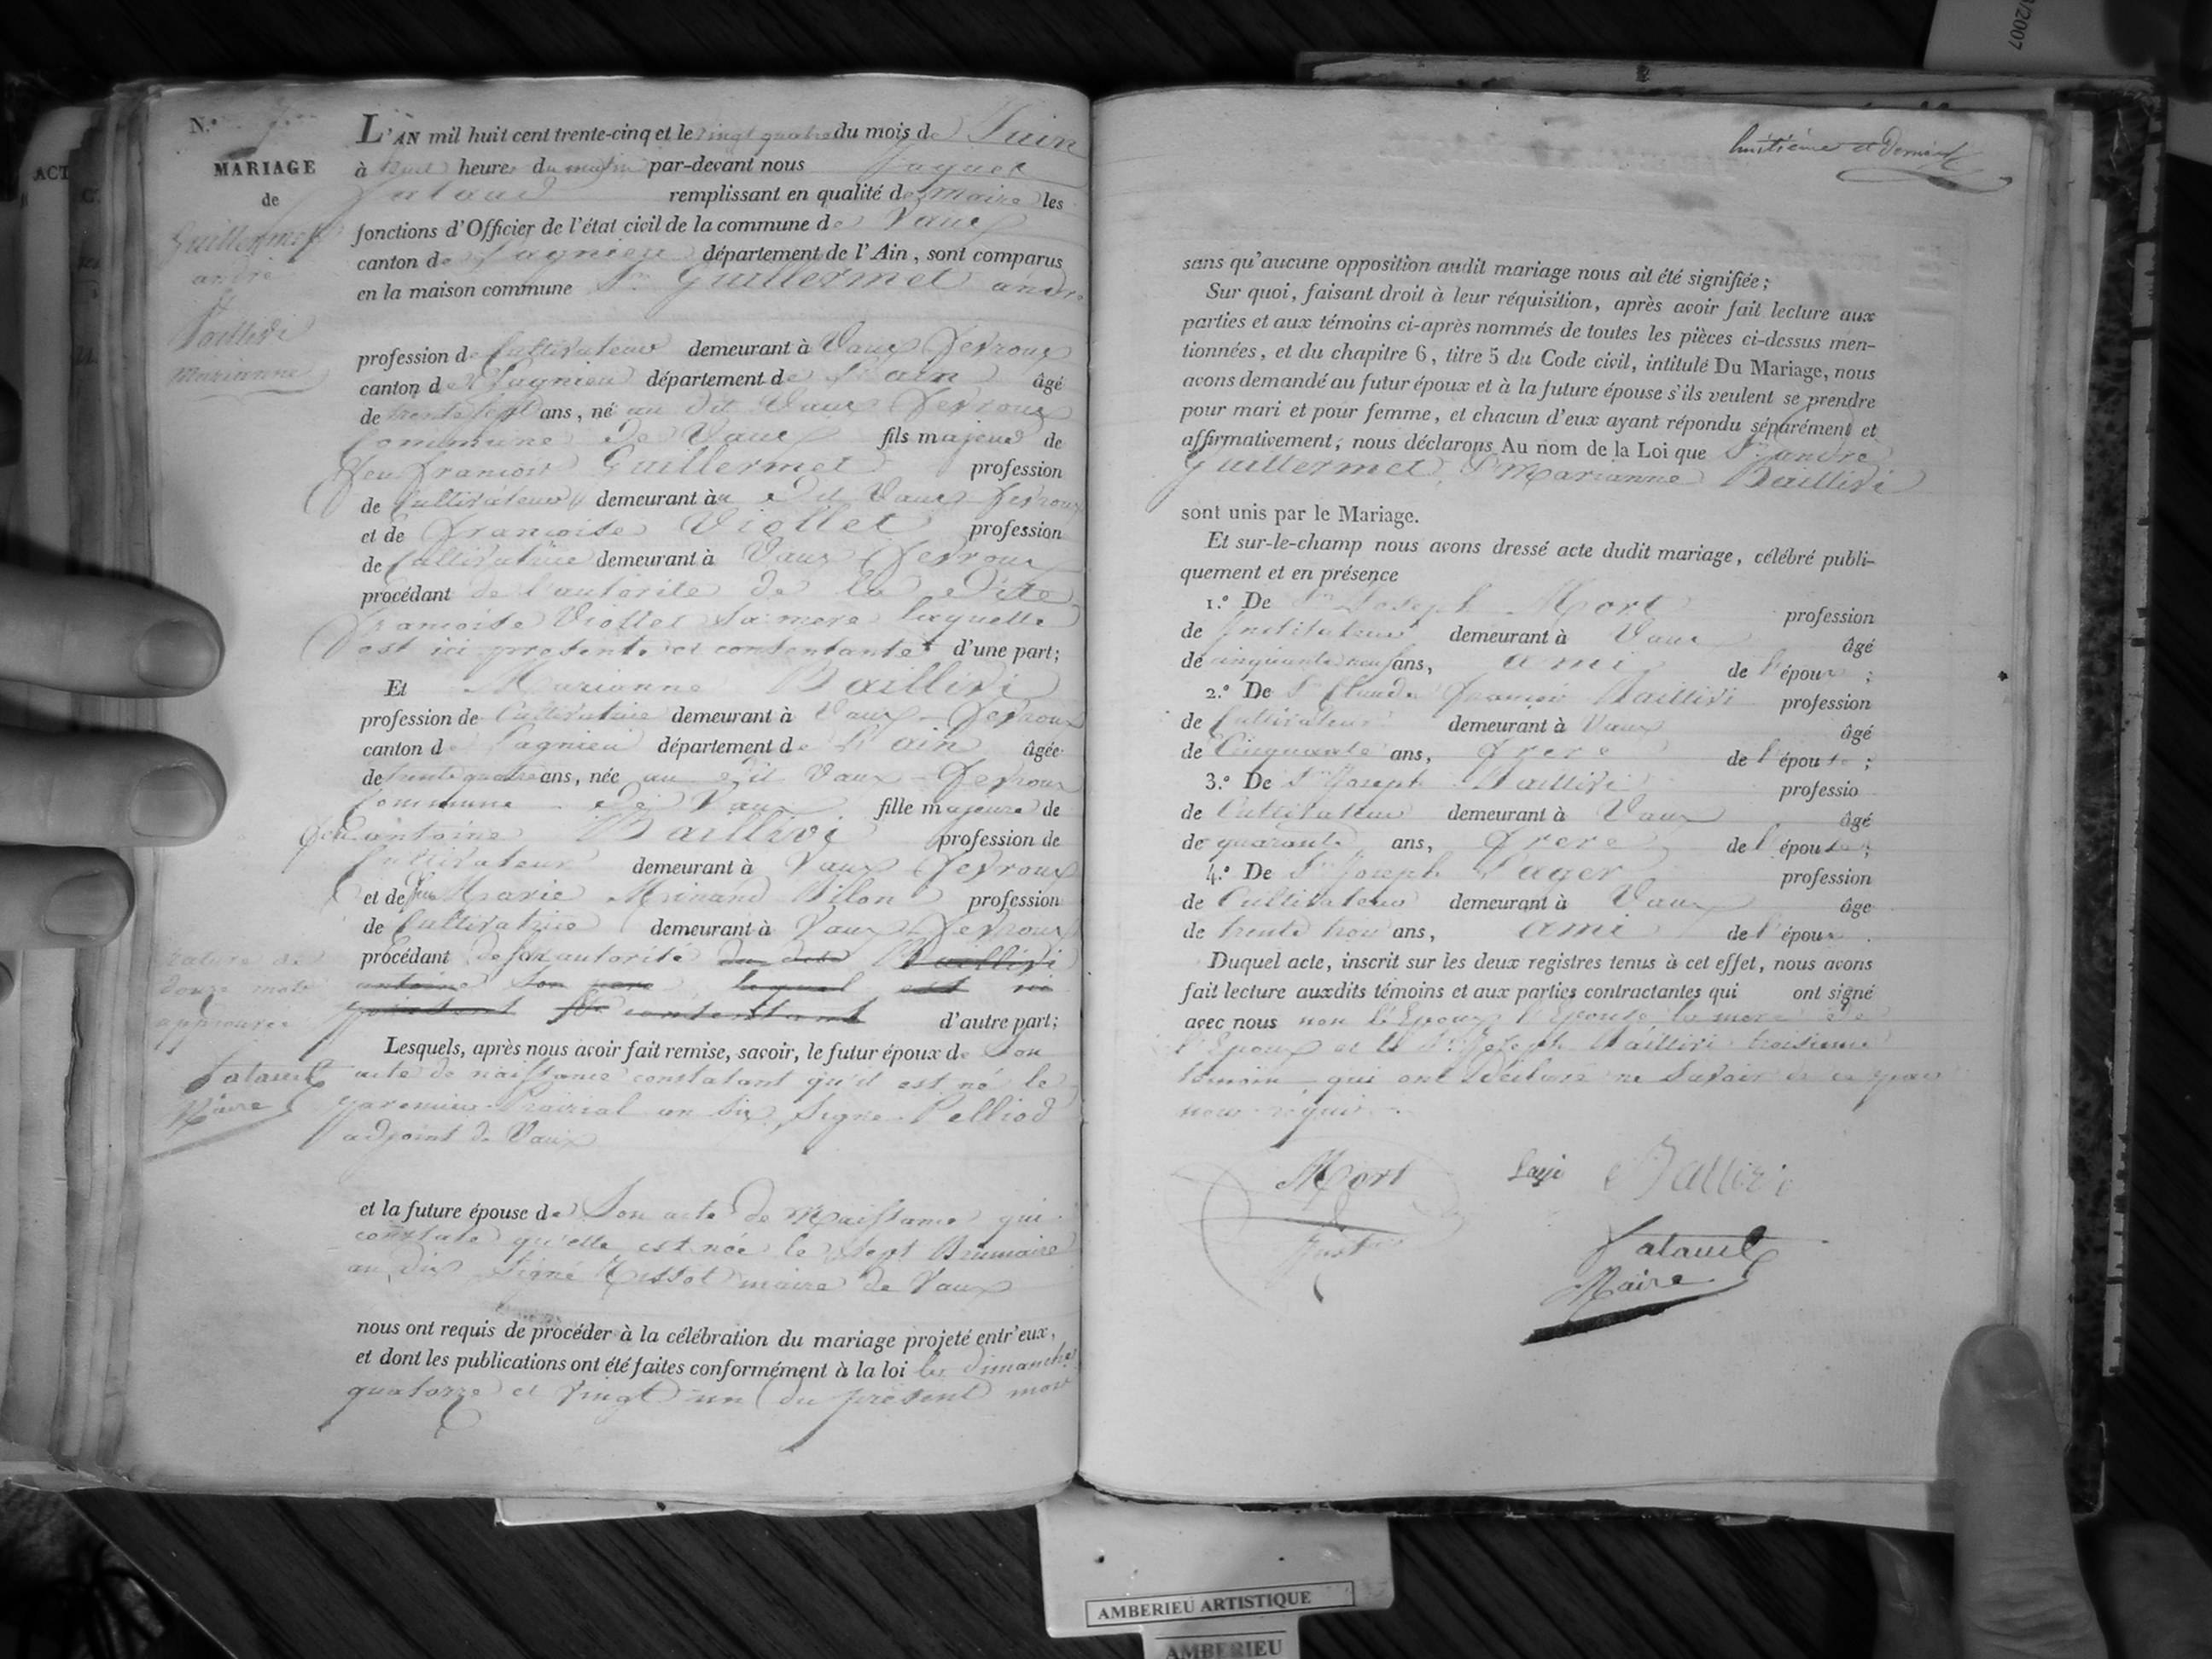 N.º
MARIAGE
de
Guillermet
andré
et
Baillivi
Marianne
L'AN mil huit cent trente-cinq et le vingt quatre du mois de Juin
à huit heures du matin par-devant nous
remplissant en qualité de maire les
fonctions d'Officier de l'état civil de la commune de Vaux
canton de Lagnieu département de l'Ain, sont comparus
en la maison commune Sr Guillermet andré
profession de Cultivateur demeurant à Vaux Fevroux
canton de Lagnieu département de L'ain âgé
de trente sept ans, né au dit Vaux Fevroux
Commune de Vaux fils majeur de
feu françois Guillermet profession
de Cultivateur demeurant au dit Vaux Fevroux
et de françoise Viollet profession
de Cultivatrice demeurant à Vaux Fevroux
procédant de l'autorité de la dite
françoise Viollet Sa mere laquelle
est ici presente et consentante d'une part;
Et Marianne Baillivi
profession de Cultivatrice demeurant à Vaux - Fevroux
canton de Lagnieu département de L'ain âgée
de trente quatre ans, née au dit Vaux - Fevroux
Commune de Vaux fille majeure de
feu antoine Baillivi profession de
Cultivateur demeurant à Vaux Fevroux
et de feue Marie Minand Bilon profession
de Cultivatrice demeurant à Vaux - Fevroux
procédant de son autorité du dit Baillivi
antoine Son pere lequel est ici
present et consentant d'autre part;
rature de
douze mots
approuvée
Lesquels, après nous avoir fait remise, savoir, le futur époux de Son
acte de naissance constatant qu'il est né le
premier Prairial an Six, Signé Pelliod
adjoint de Vaux
Maire
et la future épouse de Son acte de Naissance qui
constate qu'elle est née le Sept Brumaire
an dix Signé maire de Vaux
nous ont requis de procéder à la célébration du mariage projeté entr'eux,
et dont les publications ont été faites conformément à la loi les dimanches
quatorze et vingt un du présent mois
huitième et dernier
sans qu'aucune opposition audit mariage nous ait été signifiée;
Sur quoi, faisant droit à leur réquisition, après avoir fait lecture aux
parties et aux témoins ci-après nommés de toutes les pièces ci-dessus men-
tionnées, et du chapitre 6, titre 5 du Code civil, intitulé Du Mariage, nous
avons demandé au futur époux et à la future épouse s'ils veulent se prendre
pour mari et pour femme, et chacun d'eux ayant répondu séparément et
affirmativement, nous déclarons Au nom de la Loi que Sr andré
Guillermet, Marianne Baillivi
sont unis par le Mariage.
Et sur-le-champ nous avons dressé acte dudit mariage, célébré publi-
quement et en présence
1.º De Sr Joseph Mort profession
de Instituteur demeurant à Vaux âgé
de cinquante neuf ans, ami de l'époux;
2.º De Sr Claude François Baillivi profession
de Cultivateur demeurant à Vaux âgé
de Cinquante ans, frere de l'épouse;
3.º De Sr Joseph Baillivi professio
de Cultivateur demeurant à Vaux âgé
de quarante ans, frere de l'épouse;
4.º De Sr Joseph profession
de Cultivateur demeurant à Vaux âge
de trente trois ans, ami de l'époux.
Duquel acte, inscrit sur les deux registres tenus à cet effet, nous avons
fait lecture auxdits témoins et aux parties contractantes qui ont signé
avec nous non l'Epoux l'Epouse la mere de
l'Epoux et le Sr Joseph Baillivi troisieme
temoin qui ont declaré ne Savoir de ce
requis.
Mort
Baillivi
Maire
AMBERIEU ARTISTIQUE
AMBERIEU
/2007
ACT